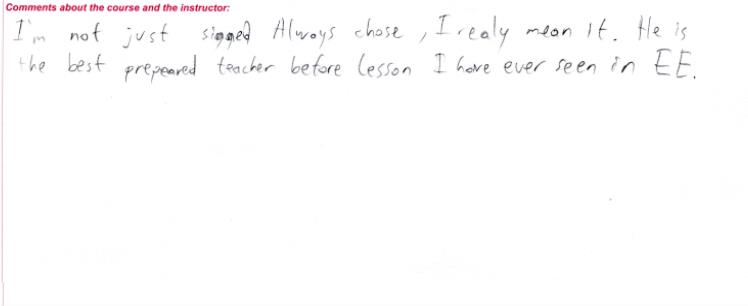 Comments about the course and the instructor:
I'm not just signed Always chose, I realy mean It. He is
the best prepeared teacher before lesson I have ever seen in EE.